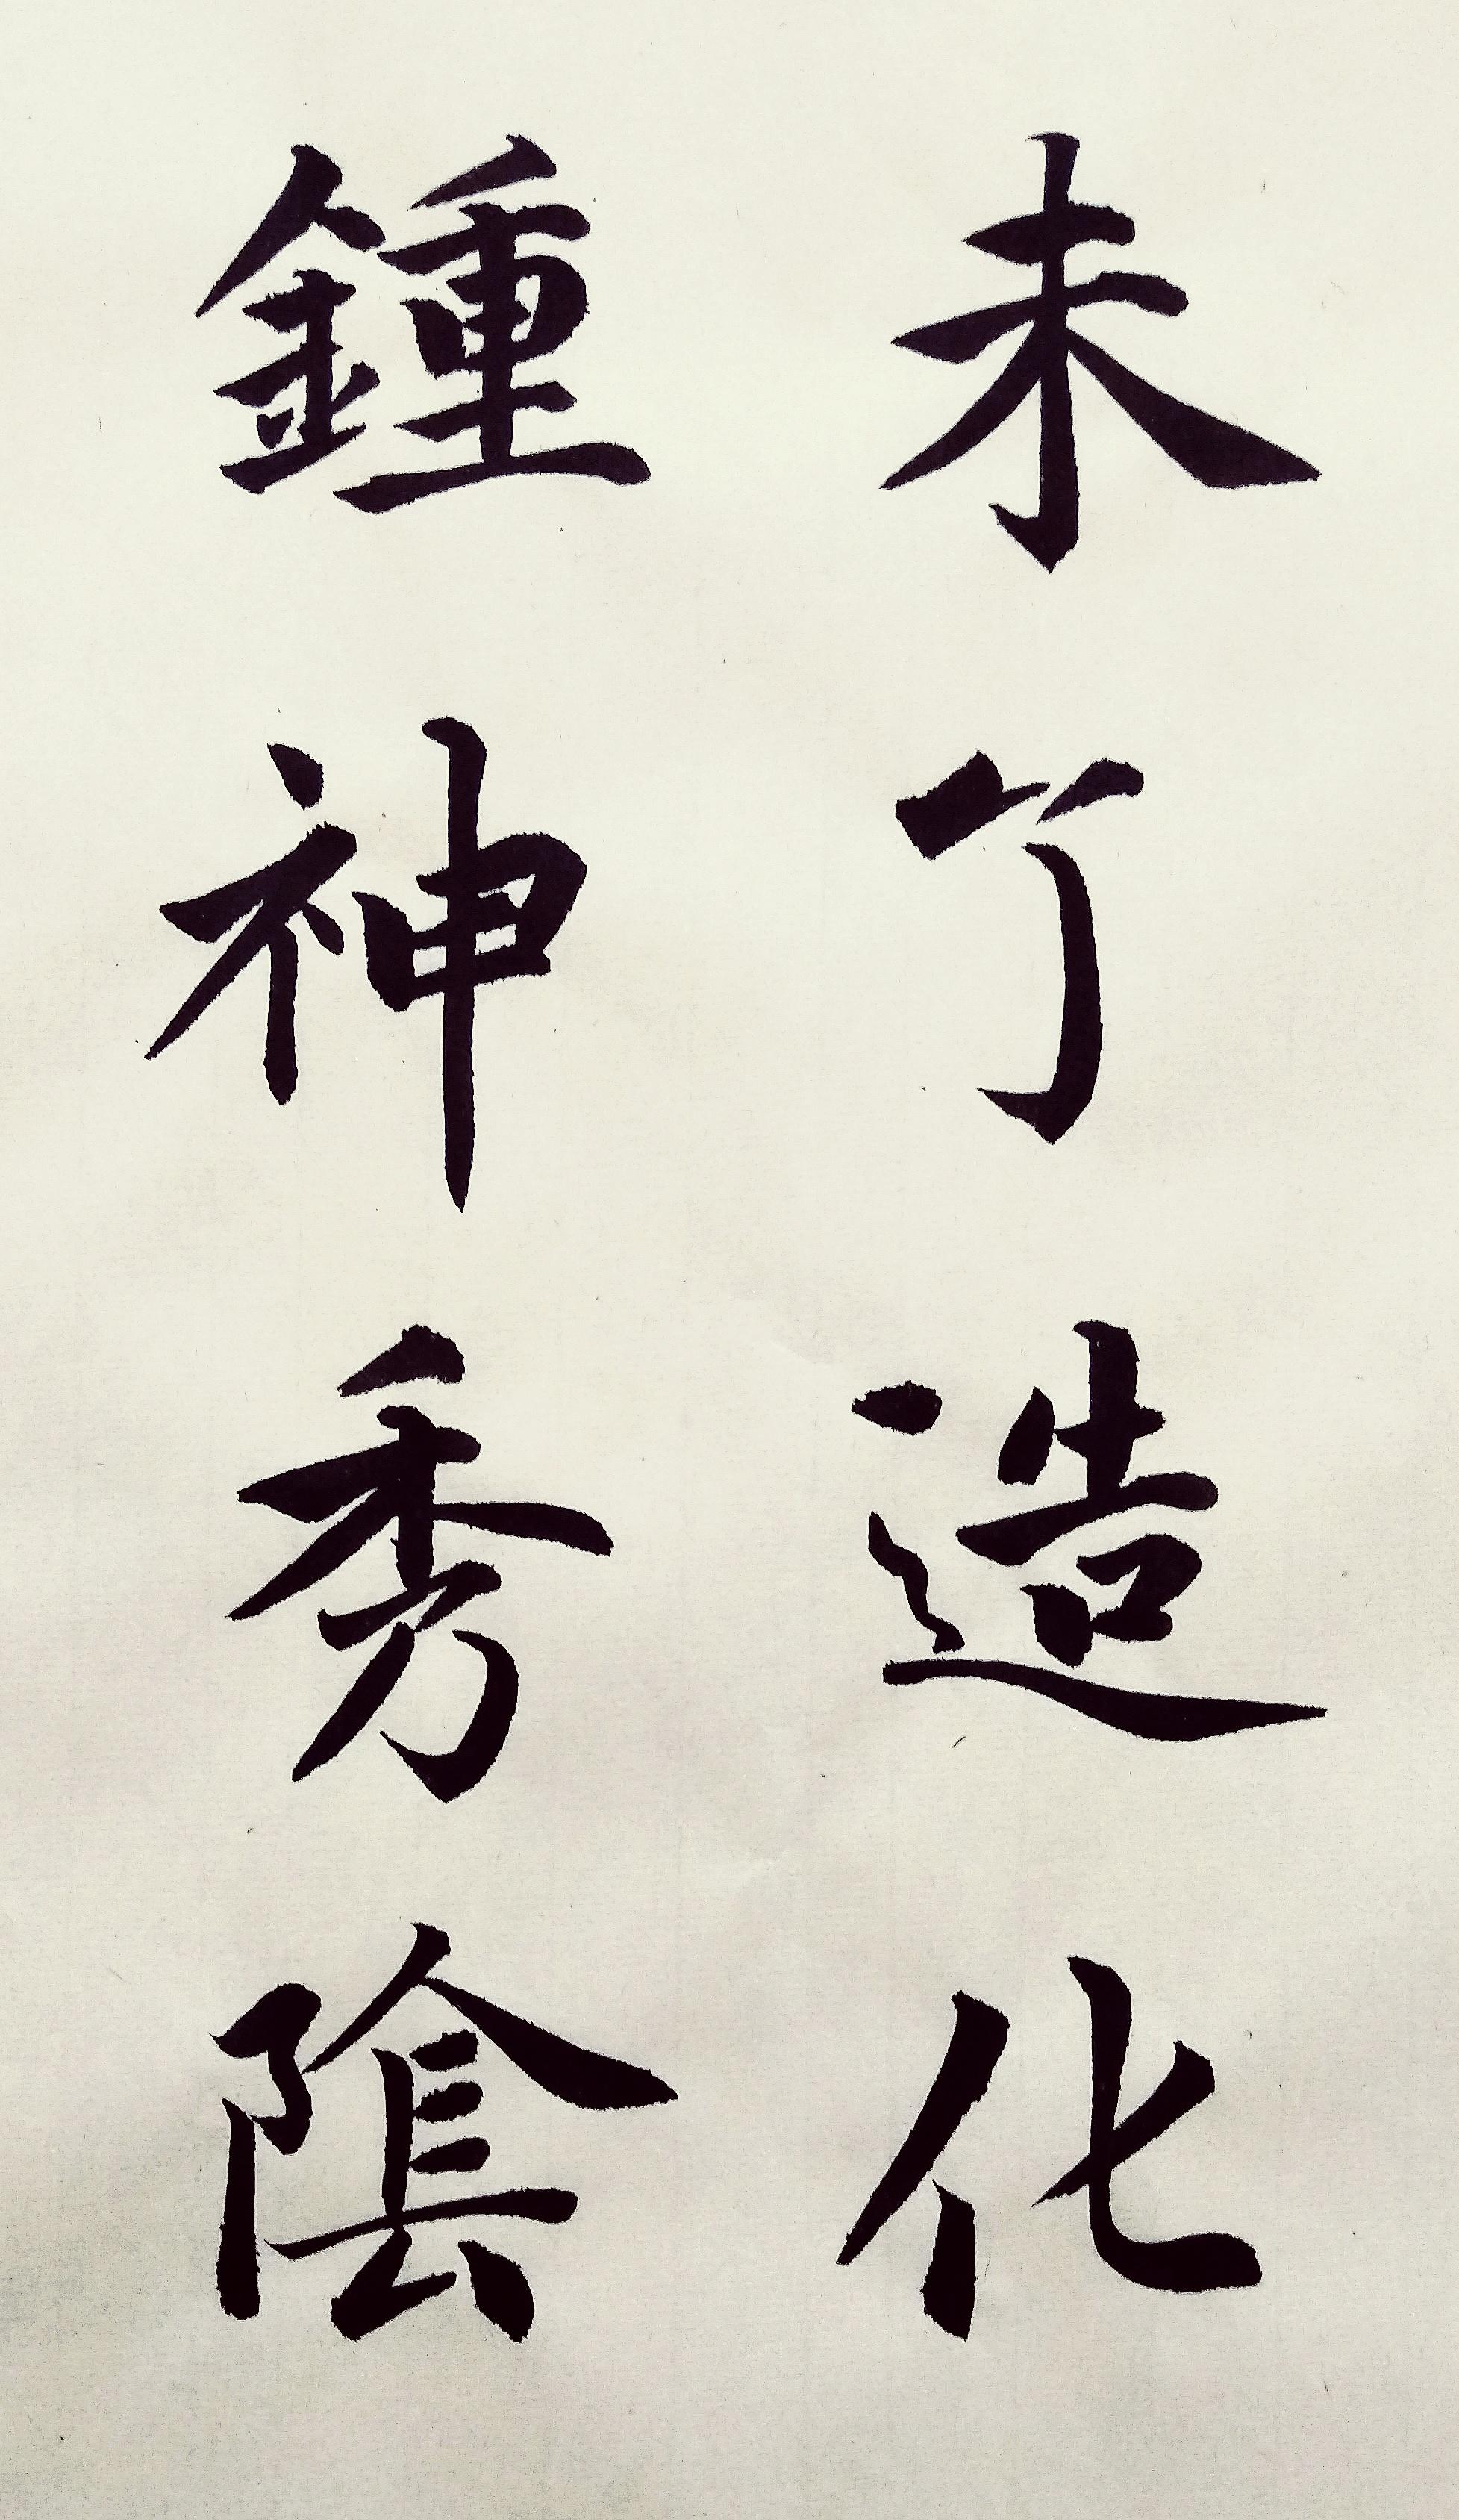 未了造化
鍾神秀陰